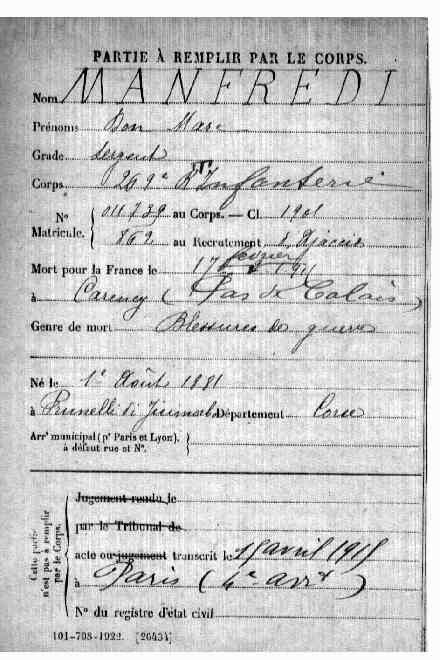 PARTIE À REMPLIR PAR LE CORPS.
Nom MANFREDI
Prénoms Don Marc
Grade Sergent
Corps 269e R Infanterie
No 011739 au Corps. — Cl. 1901
Matricule. 862 au Recrutement Ajaccio
Mort pour la France le 17 février
à Carency (Pas de Calais)
Genre de mort Blessures de guerre
Né le 1er Août 1881
à Prunelli di Département Corse
Arrt municipal (pr Paris et Lyon),
à défaut rue et No.
Cette partie
n'est pas à remplir
par le Corps.
Jugement rendu le
par le Tribunal de
acte ou jugement transcrit le 15 avril 1915
à Paris (4e arrt)
No du registre d'état civil
101-708-1922. [26434]